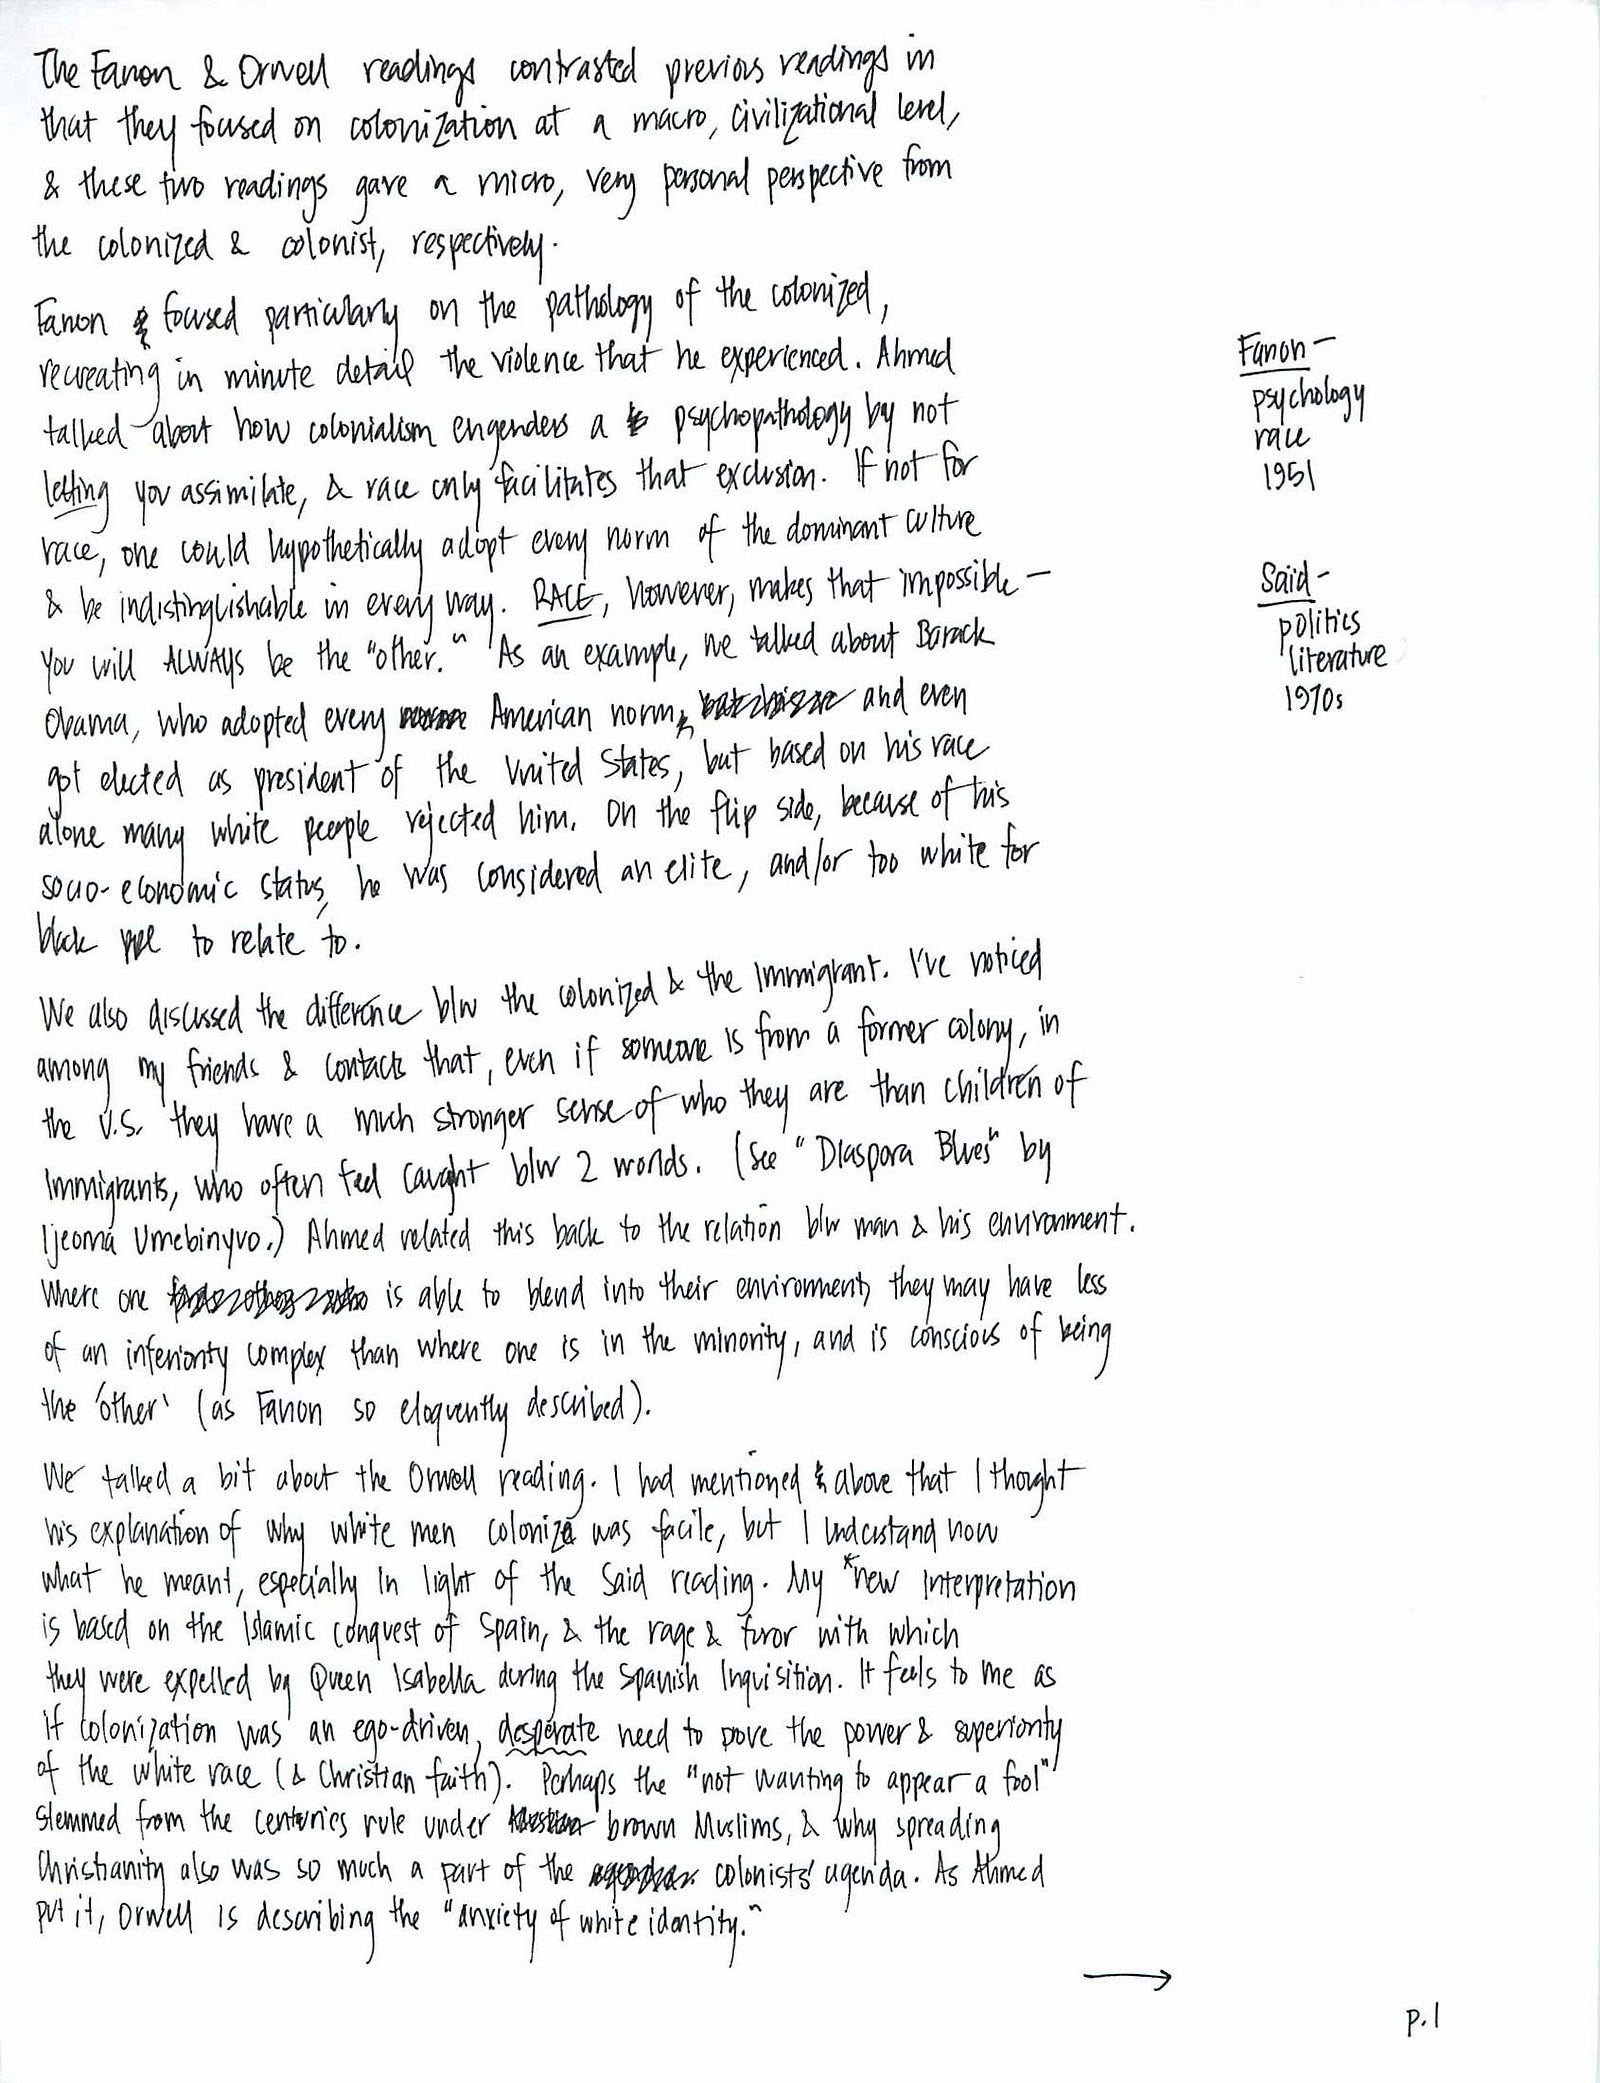 The Fanon & Orwell readings contrasted previous readings in
that they focused on colonization at a macro, civilizational level,
& these two readings gave a micro, very personal perspective from
the colonized & colonist, respectively.
Fanon focused particularly on the pathology of the colonized,
recreating in minute detail the violence that he experienced. Ahmed
talked about how colonialism engenders a psychopathology by not
letting you assimilate, & race only facilitates that exclusion. If not for
race, one could hypothetically adopt every norm of the dominant culture
& be indistinguishable in every way. RACE, however, makes that impossible –
you will ALWAYS be the "other." As an example, we talked about Barack
Obama, who adopted every American norm, and even
got elected as president of the United States, but based on his race
alone many white people rejected him. On the flip side, because of his
socio-economic status, he was considered an elite, and/or too white for
black ppl to relate to.
We also discussed the difference b/w the colonized & the immigrant. I've noticed
among my friends & contacts that, even if someone is from a former colony, in
the U.S. they have a much stronger sense of who they are than children of
immigrants, who often feel caught b/w 2 worlds. (See "Diaspora Blues" by
Ijeoma Umebinyuo.) Ahmed related this back to the relation b/w man & his environment.
Where one is able to blend into their environment, they may have less
of an inferiority complex than where one is in the minority, and is conscious of being
the 'other' (as Fanon so eloquently described).
We talked a bit about the Orwell reading. I had mentioned above that I thought
his explanation of why white men colonize was facile, but I understand now
what he meant, especially in light of the Said reading. My *new interpretation
is based on the Islamic conquest of Spain, & the rage & furor with which
they were expelled by Queen Isabella during the Spanish Inquisition. It feels to me as
if colonization was an ego-driven, desperate need to prove the power & superiority
of the white race (& Christian faith). Perhaps the "not wanting to appear a fool"
stemmed from the centuries rule under brown Muslims, & why spreading
Christianity also was so much a part of the colonists' agenda. As Ahmed
put it, Orwell is describing the "anxiety of white identity."
→
p.1
Fanon –
psychology
race
1951
Said –
politics
literature
1970s